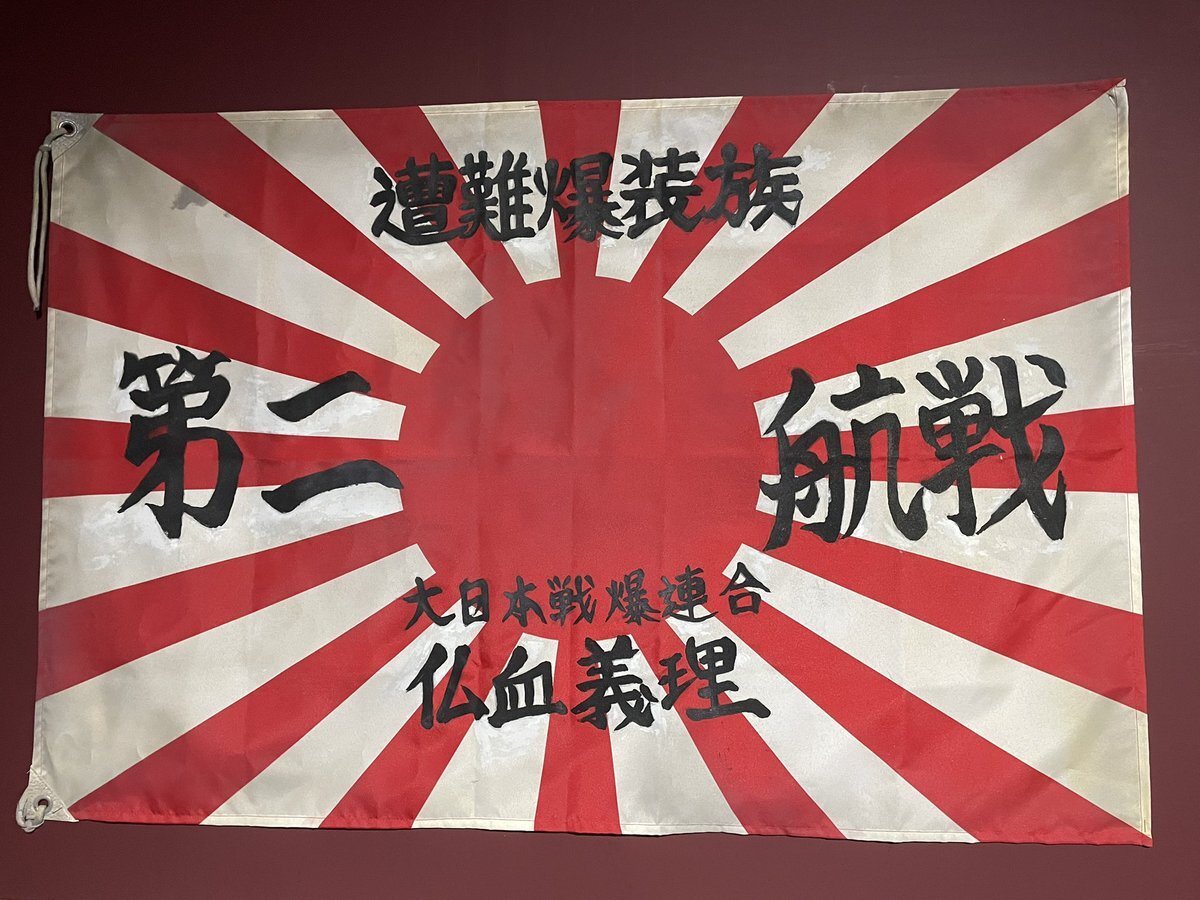 遭難爆装族
第二 航戦
大日本戦爆連合
仏血義理